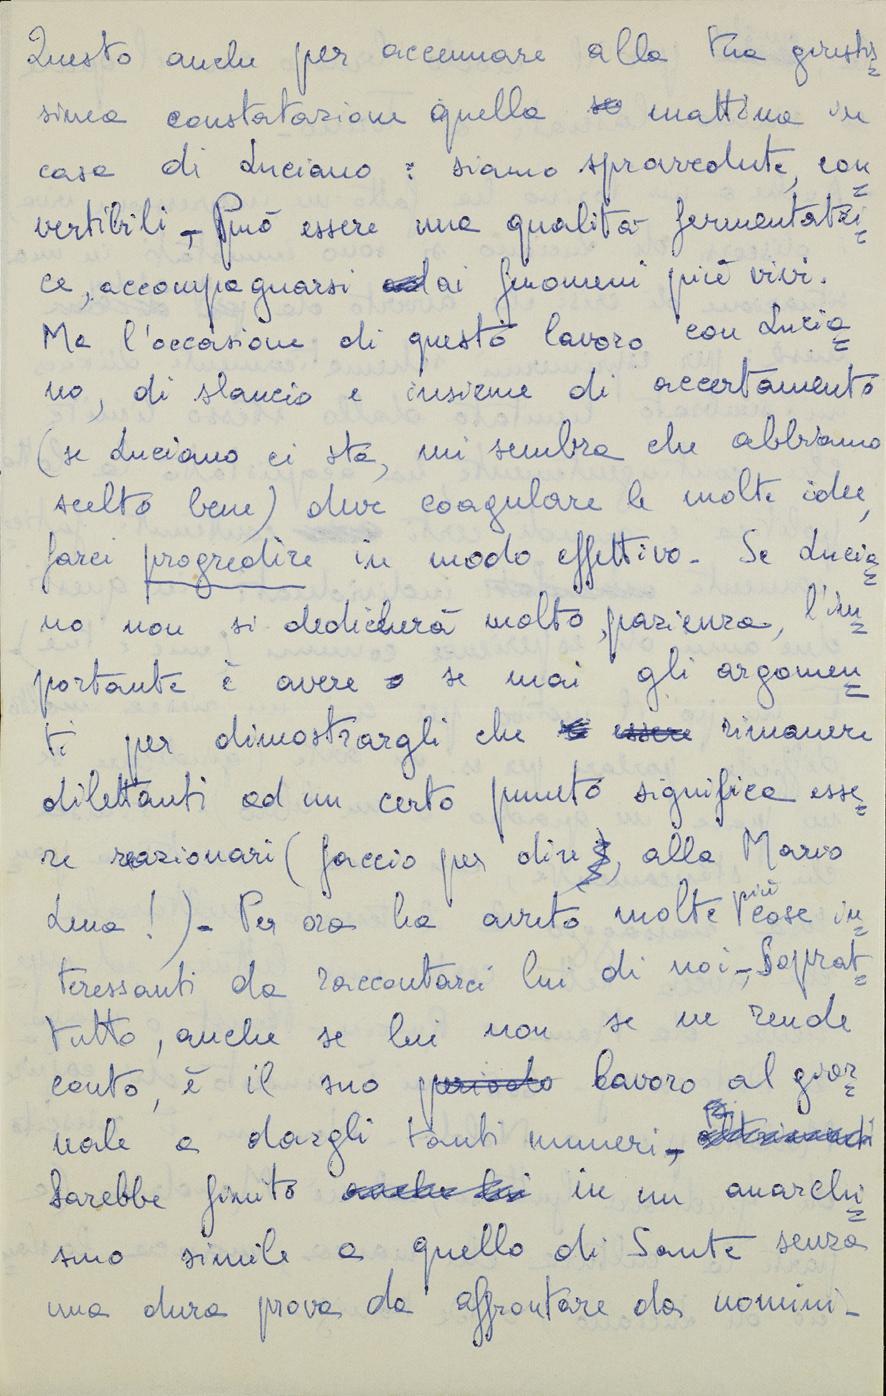 Questo anche per accennare alla tua giustis=
sima constatazione quella se mattina in
casa di Luciano : siamo sprovvedute, con=
vertibili - Può essere una qualità fermentatri=
ce, accompagnarsi dai fenomeni più vivi.
Ma l'occasione di questo lavoro con Lucia=
no, di slancio e insieme di accertamento
(se Luciano ci sta, mi sembra che abbiamo
scelto bene) deve coagulare le molte idee,
farci progredire in modo effettivo - Se Lucia=
no non si dedicherà molto, pazienza, l'im=
portante è avere se mai gli argomen=
ti per dimostrargli che essere rimanere
dilettanti ad un certo punto significa esse=
re reazionari (faccio per dire, alla Mario
Luna !) - Per ora ha avuto molte più cose in=
teressanti da raccontarci lui di noi -, Soprat=
tutto, anche se lui non se ne rende
conto, è il suo periodo lavoro al gior=
nale a dargli tanti numeri -, altrimenti
Sarebbe finito anche lui in un anarchi=
smo simile a quello di Sante senza
una dura prova da affrontare da uomini -